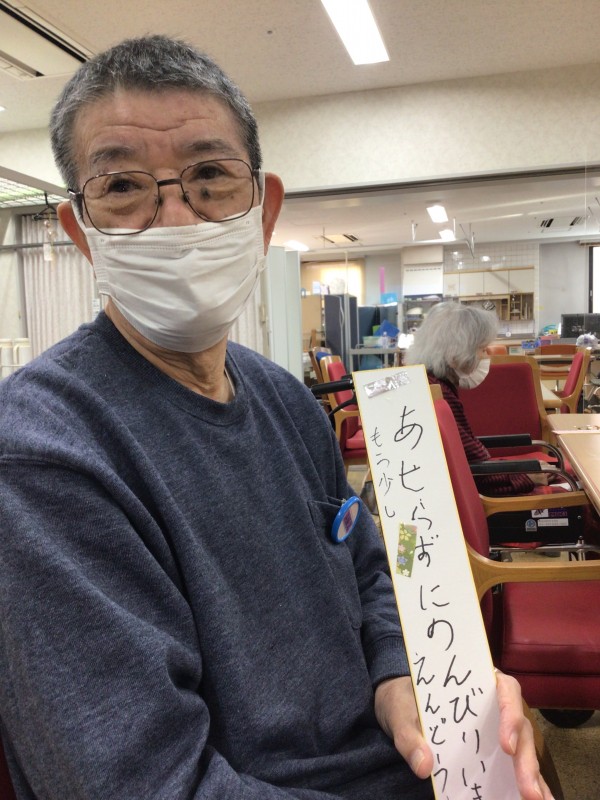 あせらずにのんびりいき
もう少し
えんどう